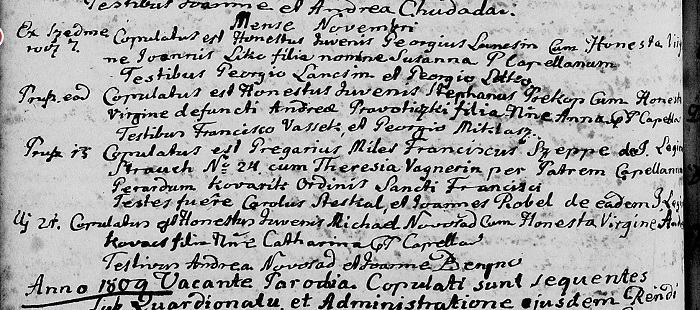 Testibus Joanne et Andrea Chudada.
Mense Novembri
Ex Szedme Copulatus est Honestus Juvenis Georgius Cum Honesta Virgi
7 ne Joannis Liko filia nomine Susanna P Capellanum
Testibus Georgio Lancsin et Georgio
ead Copulatus est Honestus Juvenis Stephanus Prekop Cum Honesta
Virgine defuncti Andreæ filia Nñe Anna Capella
Testibus Francisco Vassek, et Georgio
13 Copulatus est Gregarius Miles Franciscus Szeppe de I. Legio
Strauch No 24. cum Theresia Vagnerin per Patrem Capellanu
Gerardum Kovarik Ordinis Sancti Francisci
Testes fuere Carolus Steskal, et Joannes Robel de eadem I. Leg
Uj 21. Copulatus est Honestus Juvenis Michael Novosad Cum Honesta Virgine
Kovacs filia Nñe Catharina Capella
Testibus Andrea Novosad et Joanne
Anno 1809 Vacante Parochia Copulati sunt sequentes
sub Guardionatu, et Administratione ejusdem Rendi